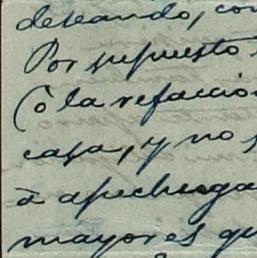 deseando, con
Por supuesto
(ó la refacción
casa, y no
á apechuga
mayores qu